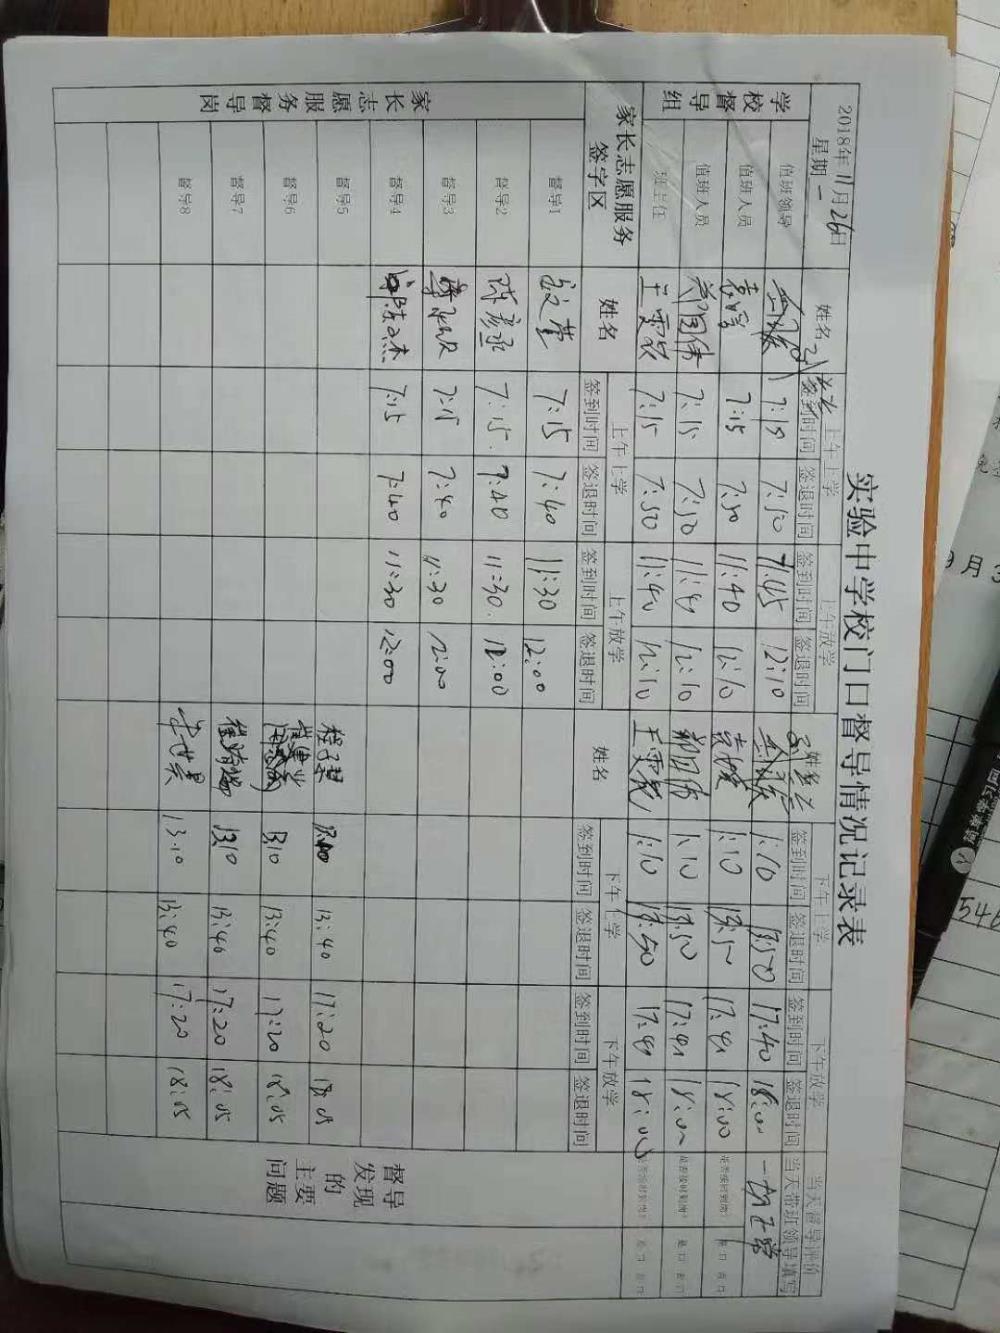 实验中学校门口督导情况记录表
2018年11月26日
星期一
姓名 上午上学 上午放学 姓名 下午上学 下午放学 当天督导评价
签到时间 签退时间 签到时间 签退时间 签到时间 签退时间 签到时间 签退时间 当天带班领导填写
学校督导组
值班领导 7:15 7:50 7:45 12:10 1:10 13:50 17:40 18:00 一切正常
值班人员 7:15 7:50 11:40 12:10 1:10 17:40 18:00 是否按时到岗? 是口 否口
值班人员 郑国伟 7:15 7:50 11:40 12:10 郑国伟 1:10 13:50 17:40 18:00 是否按时到岗? 是口 否口
班主任 7:15 7:50 11:40 12:10 1:10 13:50 17:40 18:00 是否按时到岗? 是口 否口
家长志愿服务签字区 姓名 上午上学 上午放学 姓名 下午上学 下午放学
签到时间 签退时间 签到时间 签退时间 签到时间 签退时间 签到时间 签退时间
督导发现的主要问题
家长志愿服务督导岗
督导1 7:15 7:40 11:30 12:00
督导2 陈彦丞 7:15 7:40 11:30 12:00
督导3 7:15 7:40 11:30 12:00
督导4 7:15 7:40 11:30 12:00
督导5 13:40 17:20 18:05
督导6 13:10 13:40 17:20 18:05
督导7 13:10 13:40 17:20 18:05
督导8 13:10 13:40 17:20 18:05
9月3
简单学习网
546